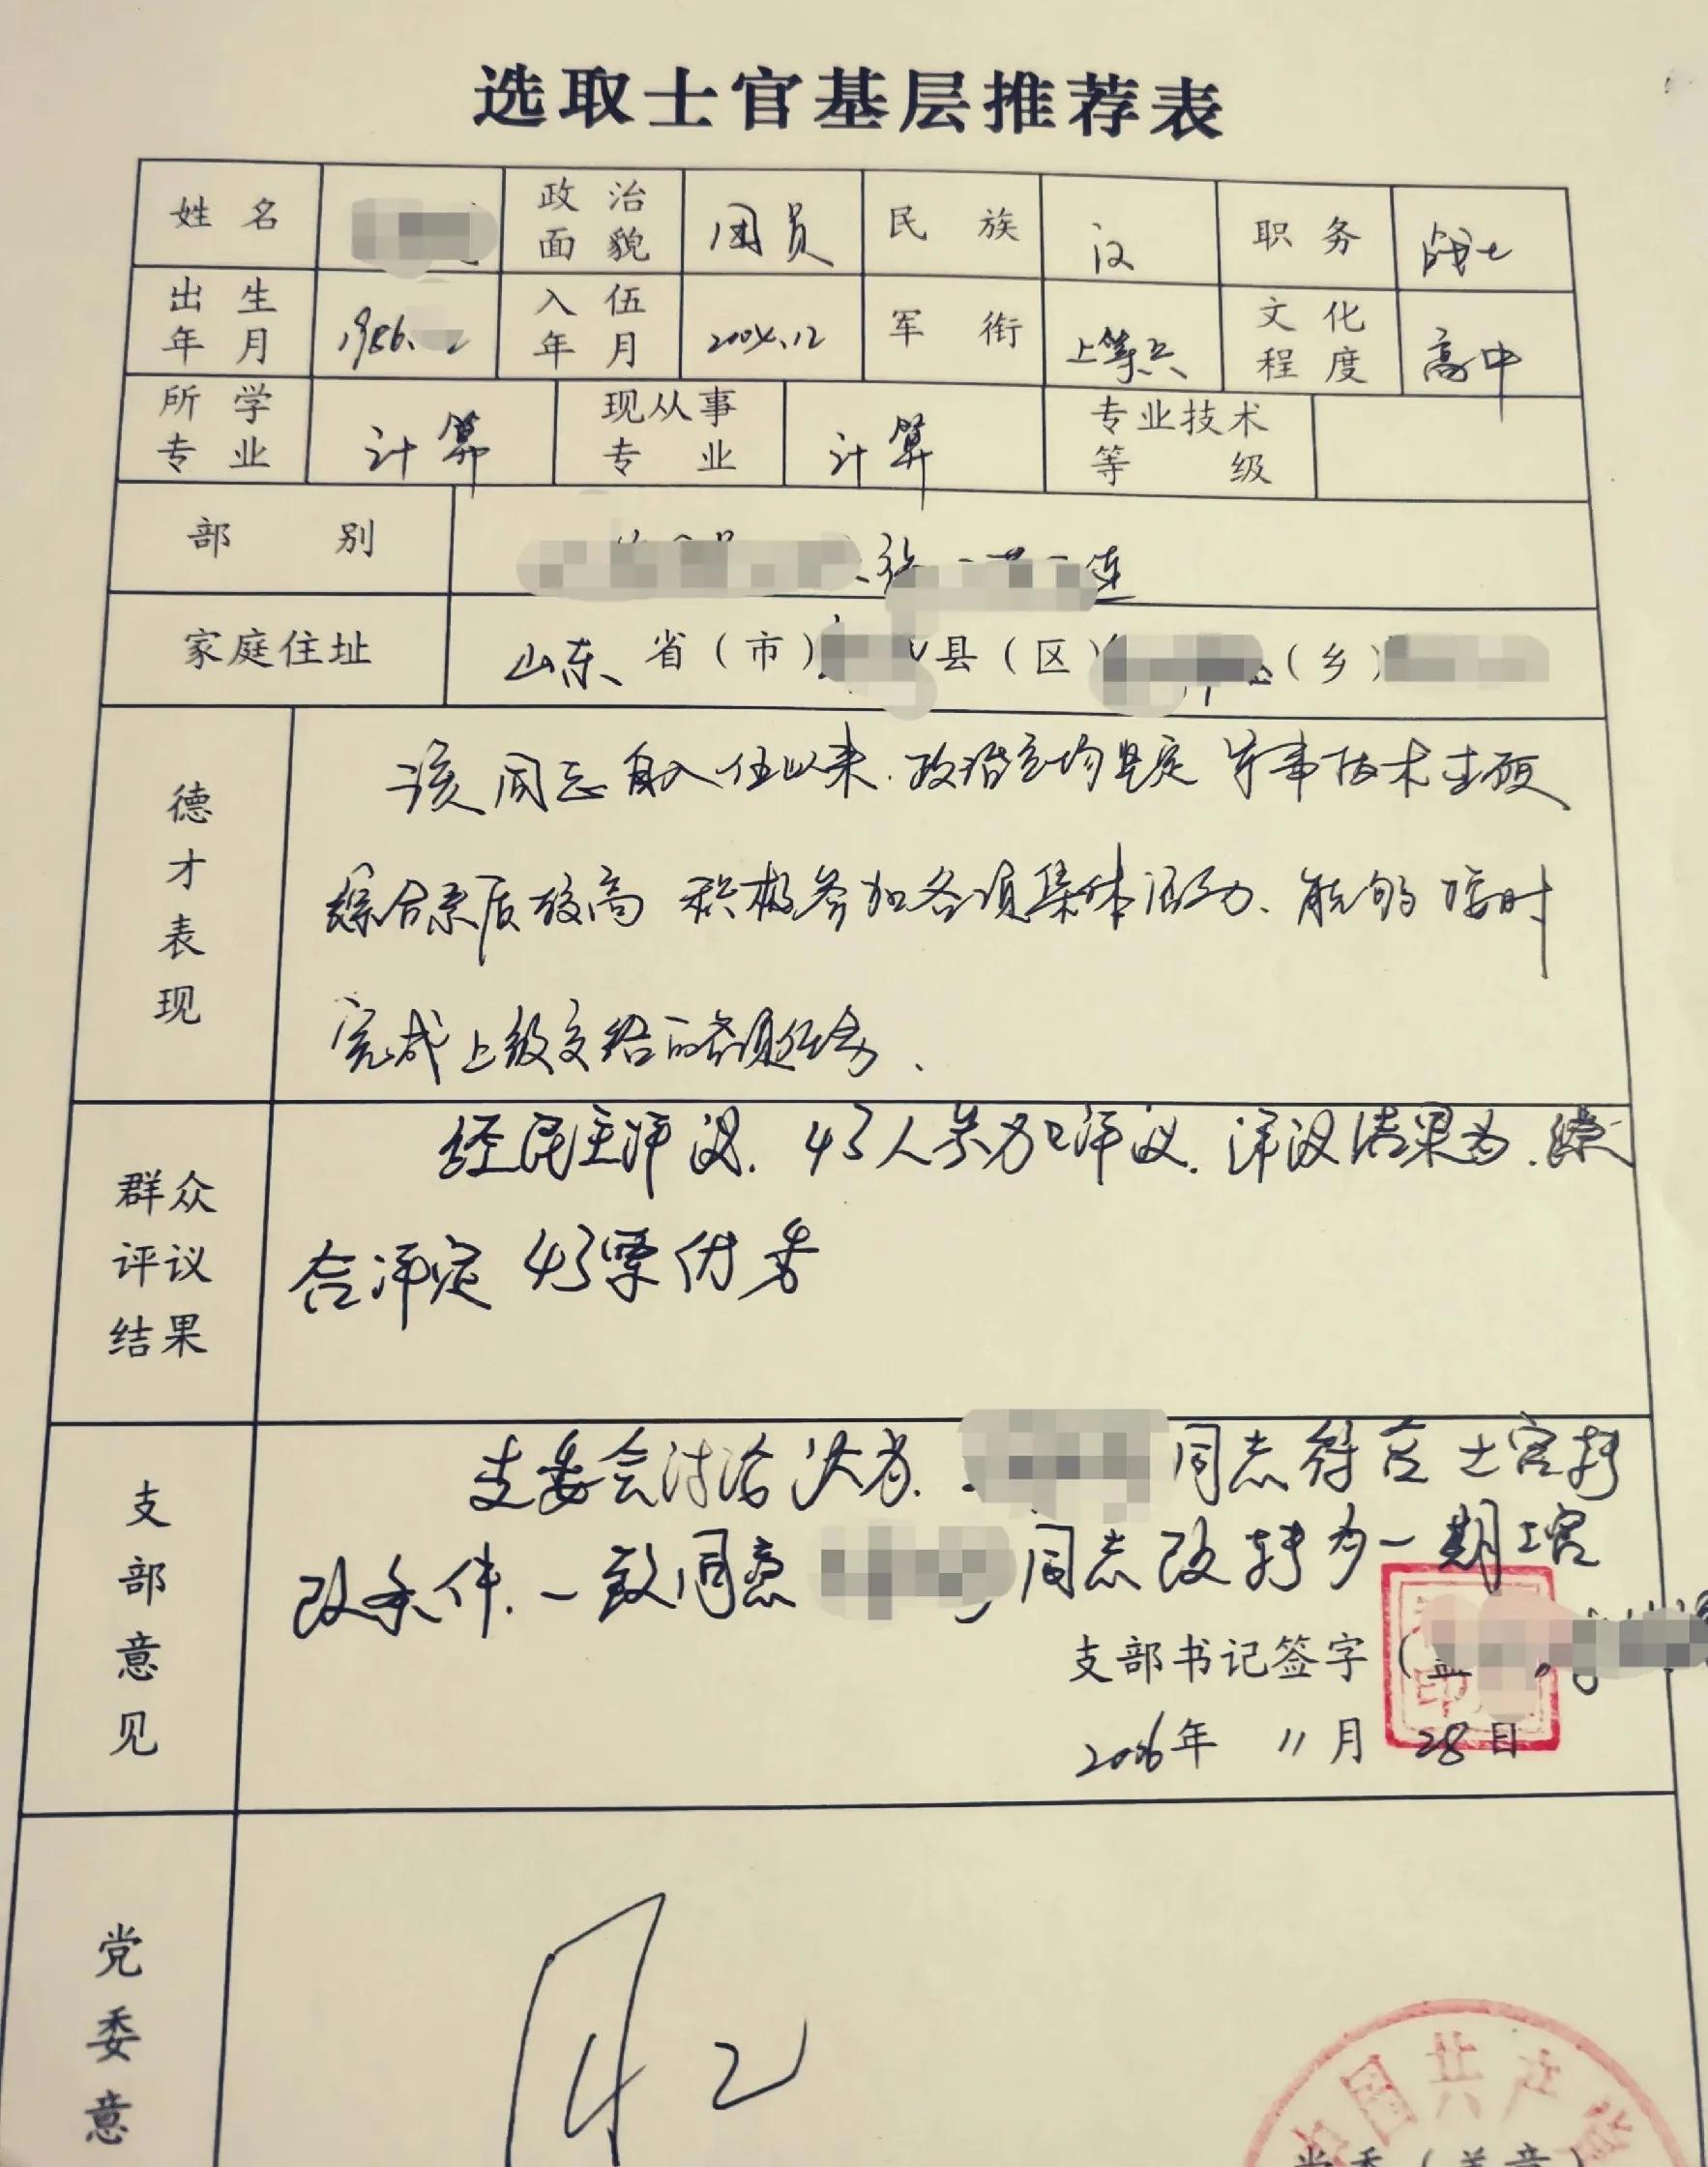 选取士官基层推荐表
姓名 政治面貌 团员 民族 汉 职务 战士
出生年月 1986. 入伍年月 2004.12 军衔 上等兵 文化程度 高中
所学专业 计算 现从事专业 计算 专业技术等级
部别 连
家庭住址 山东 省（市） 县（区） （乡）
德才表现
该同志自入伍以来.政治立场坚定 军事技术过硬
综合素质较高 积极参加各项集体活动、能够按时
完成上级交给的各项任务.
群众评议结果
经民主评议.43人参加评议.评议结果为.综
合评定 43票优秀
支部意见
支委会讨论决定. 同志符合士官转
改条件.一致同意 同志改转为一期士官
支部书记签字（
2006年 11月 28日
党委意
中国共产党
党委（盖章）